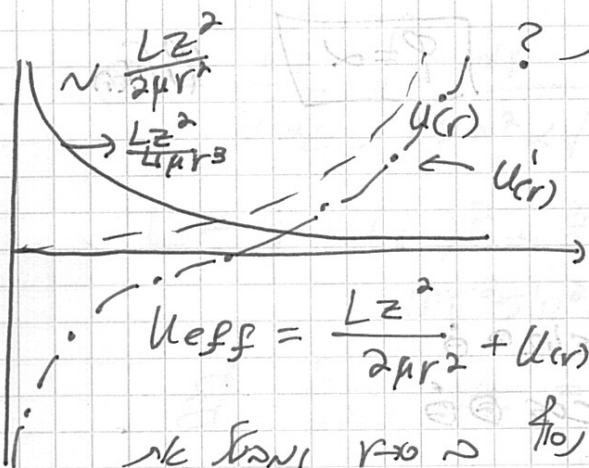 ~ Lz² / 2μr²
→ Lz² / 4μr³
?
U(r)
← U'(r)
Ueff = Lz² / 2μr² + U(r)
r→0